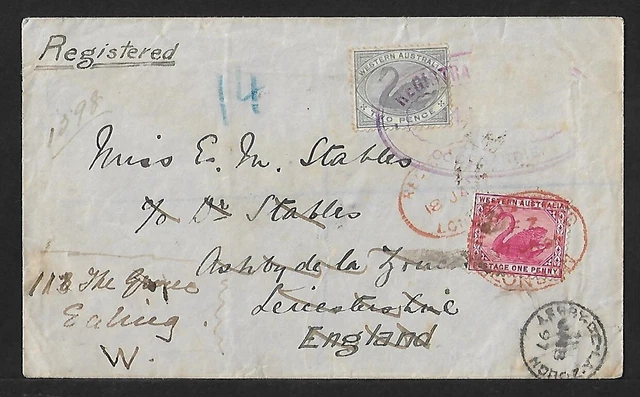 Registered
14
1598
WESTERN AUSTRALIA
TWO PENCE
REGISTRA
Miss E. M. Stables
c/o Dr Stables
18 JA
WESTERN AUSTRALIA
POSTAGE ONE PENNY
Ashby de la Zouch
113 The Grove
Leicestershire
Ealing
England
W.
ASHBY-DE-LA-ZOUCH
97